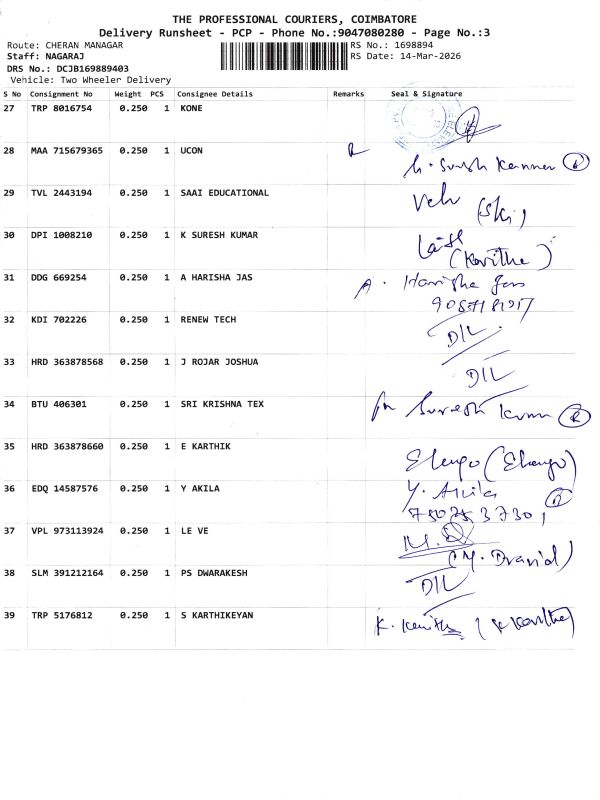 THE PROFESSIONAL COURIERS, COIMBATORE
Delivery Runsheet - PCP - Phone No.:9047080280 - Page No.:3
Route: CHERAN MANAGAR RS No.: 1698894
Staff: NAGARAJ RS Date: 14-Mar-2026
DRS No.: DCJB169889403
Vehicle: Two Wheeler Delivery
S No Consignment No Weight PCS Consignee Details Remarks Seal & Signature
27 TRP 8016754 0.250 1 KONE
28 MAA 715679365 0.250 1 UCON
29 TVL 2443194 0.250 1 SAAI EDUCATIONAL
(Ski)
30 DPI 1008210 0.250 1 K SURESH KUMAR
(Kavitha)
31 DDG 669254 0.250 1 A HARISHA JAS
A. Harisha Jas
32 KDI 702226 0.250 1 RENEW TECH
D/L
33 HRD 363878568 0.250 1 J ROJAR JOSHUA
D/L
34 BTU 406301 0.250 1 SRI KRISHNA TEX
Suresh Kumar
35 HRD 363878660 0.250 1 E KARTHIK
Elango (Elango)
36 EDQ 14587576 0.250 1 Y AKILA
Y. Akila
37 VPL 973113924 0.250 1 LE VE
(M. Dravid)
38 SLM 391212164 0.250 1 PS DWARAKESH
D/L
39 TRP 5176812 0.250 1 S KARTHIKEYAN